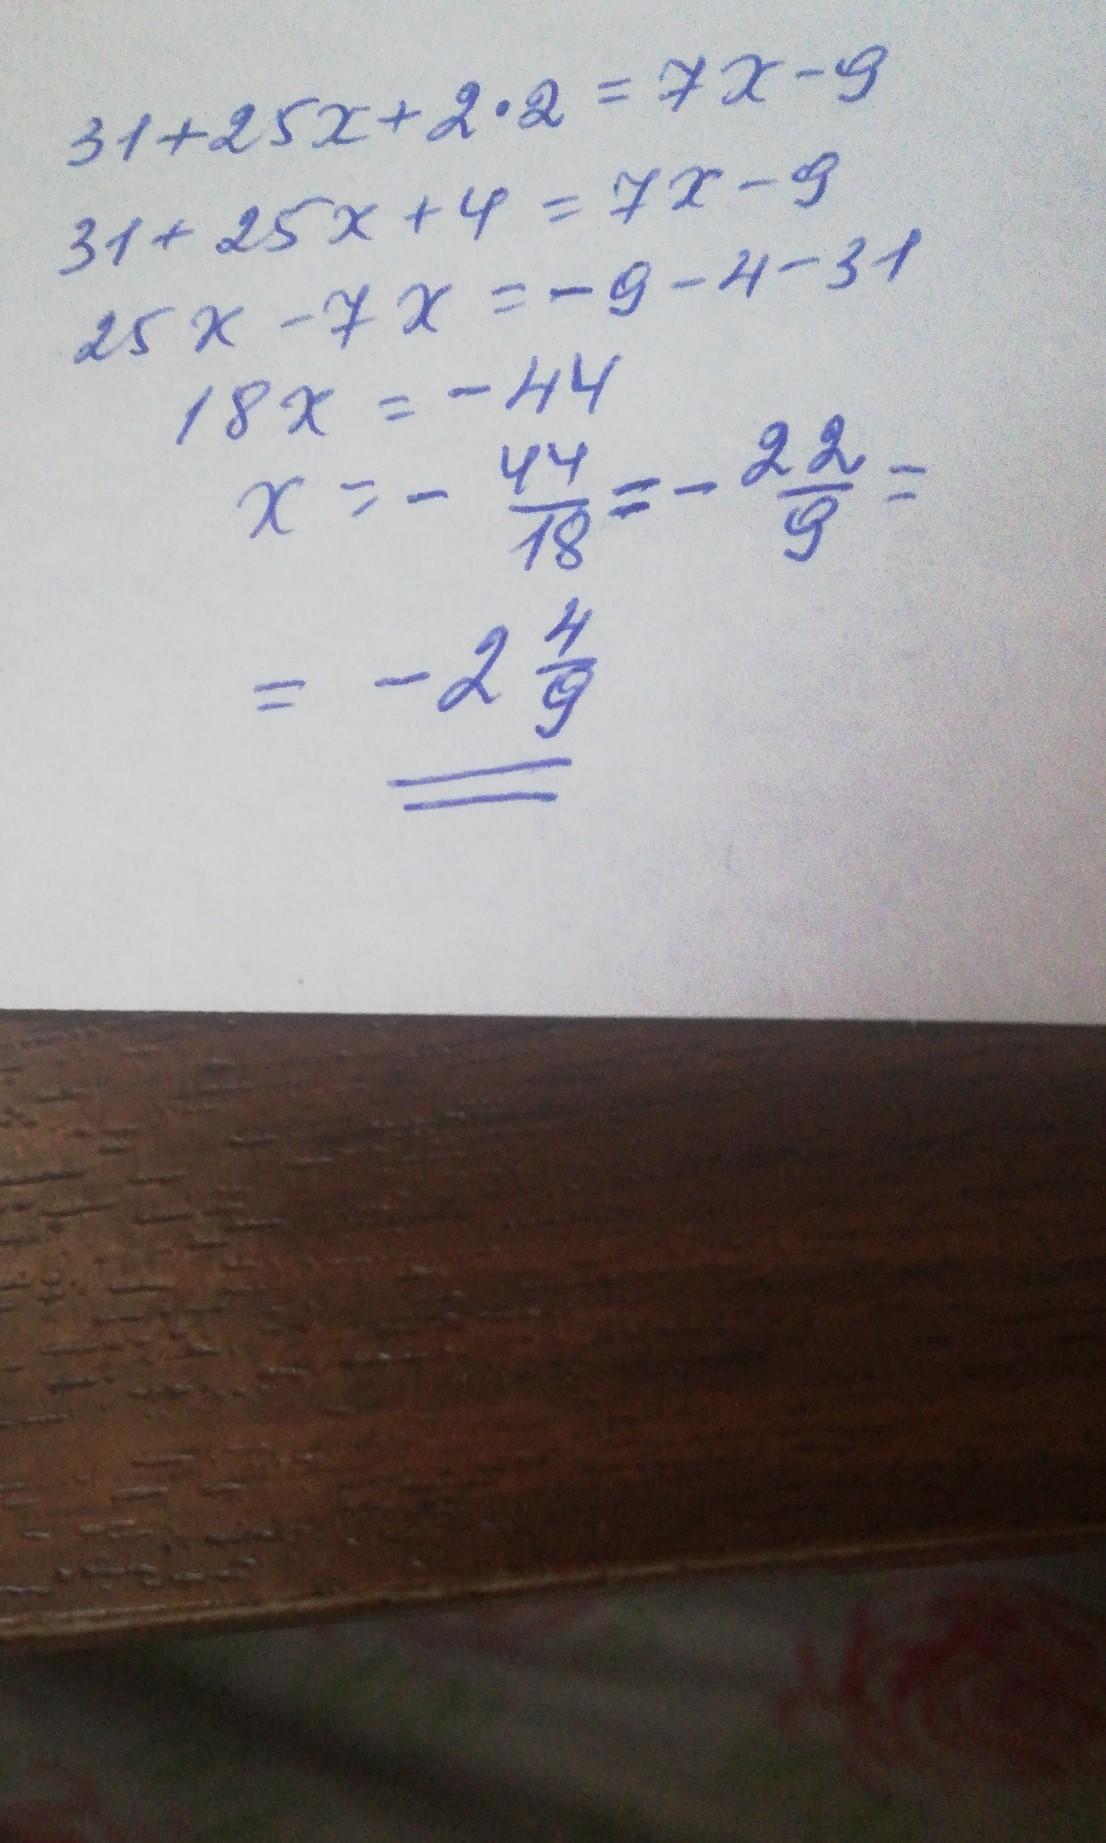 31+25x+2·2=7x-9
31+25x+4=7x-9
25x-7x=-9-4-31
18x=-44
x=-44/18=-22/9=
=-2 4/9